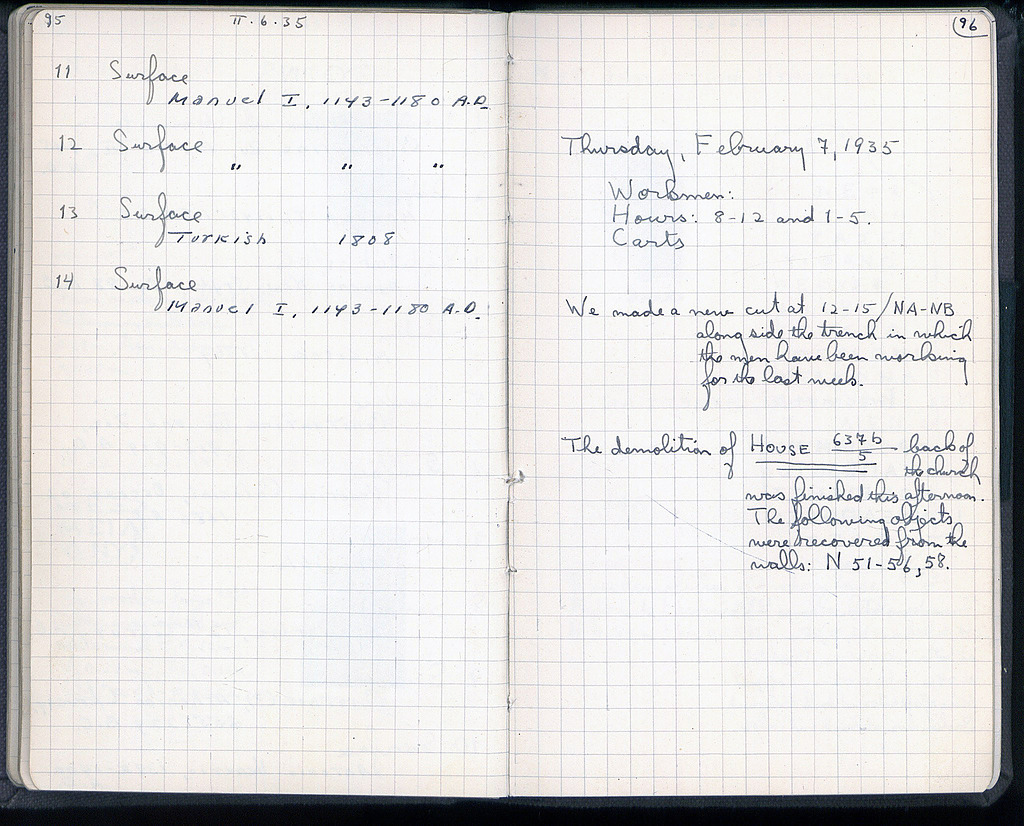 95 II.6.35
11 Surface
Manuel I, 1143-1180 A.D.
12 Surface
" " "
13 Surface
Turkish 1808
14 Surface
Manuel I, 1143-1180 A.D.
96
Thursday, February 7, 1935
Workmen:
Hours: 8-12 and 1-5.
Carts
We made a new cut at 12-15/NA-NB
along side the trench in which
the men have been working
for the last week.
The demolition of HOUSE 637b/5 back of
the church
was finished this afternoon.
The following objects
were recovered from the
walls: N 51-56, 58.